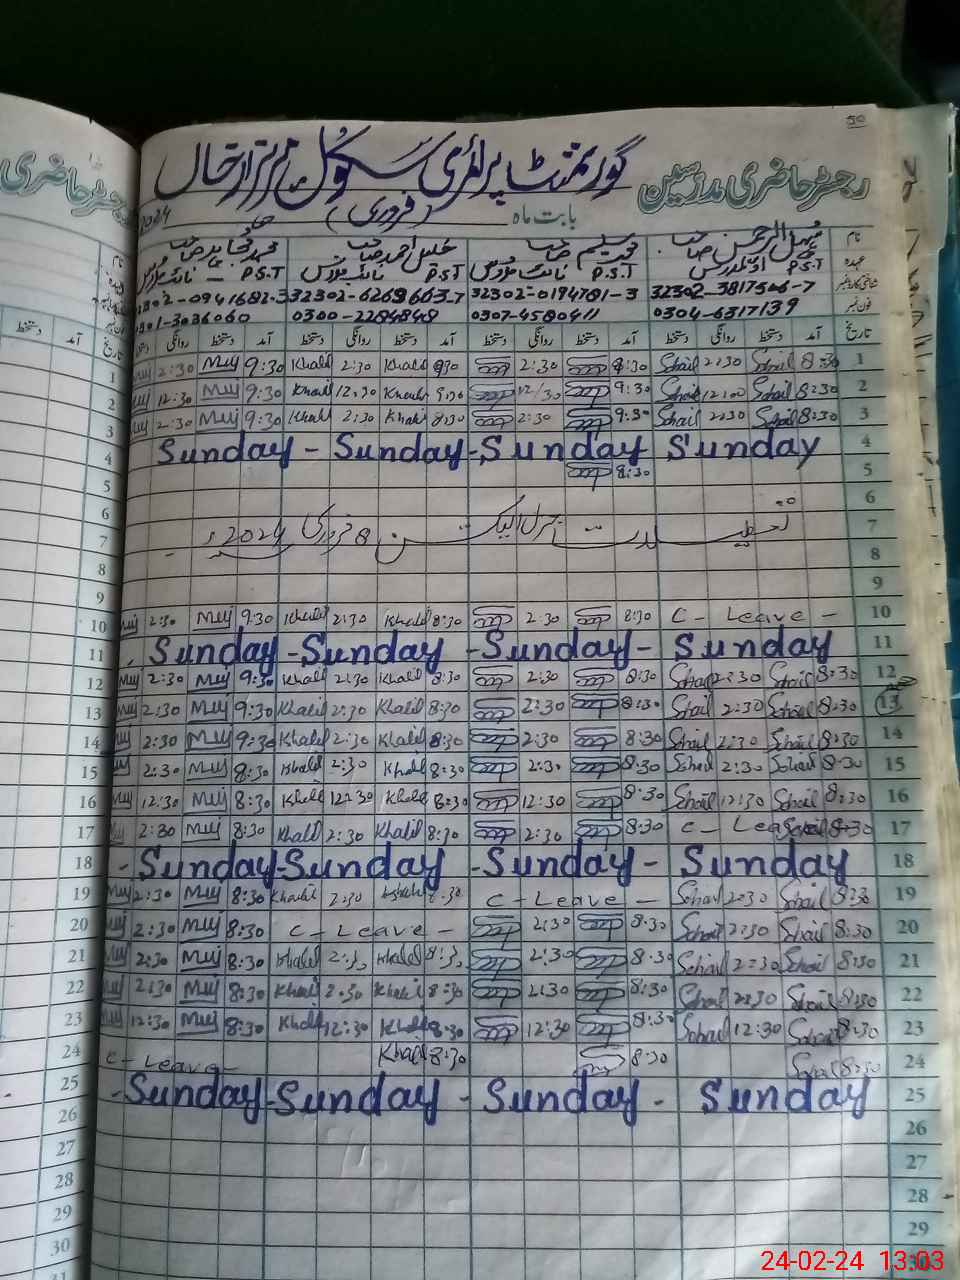 50
رجسٹر حاضری مدرسین گورنمنٹ پرائمری سکول
بابت ماہ (فروری) 2024
نام سہیل الرحمن صاحب محمد سلیم صاحب خلیل احمد صاحب محمد مجاہد صاحب
عہدہ P.S.T P.S.T P.S.T P.S.T
32302-3817506-7 32302-0194781-3 32302-6269603-7 32302-0941682-3
فون نمبر 0304-6317139 0307-4580411 0300-2284848 0301-3036060
تاریخ آمد دستخط روانگی دستخط آمد دستخط روانگی دستخط آمد دستخط روانگی دستخط آمد دستخط روانگی دستخط
1 8:30 Sohail 2:30 Sohail 8:30 2:30 8:30 Khalil 2:30 Khalil 9:30 Muj 2:30 Muj
2 8:30 Sohail 12:00 Sohail 9:30 12/30 9:30 Khalil 12:30 Khalil 9:30 Muj 12:30 Muj
3 8:30 Sohail 2:30 Sohail 9:30 2:30 8:30 Khalil 2:30 Khalil 9:30 Muj 2:30 Muj
4 Sunday - Sunday - Sunday Sunday
5 8:30
6
7 تعطیلات جنرل الیکشن 8 فروری 2024
8
9
10 C - Leave - 8:30 2:30 8:30 Khalil 2:30 Khalil 9:30 Muj 2:30 Muj
11 Sunday - Sunday - Sunday - Sunday
12 8:30 Sohail 2:30 Sohail 8:30 2:30 8:30 Khalil 2:30 Khalil 9:30 Muj 2:30 Muj
13 8:30 Sohail 2:30 Sohail 8:30 2:30 8:30 Khalil 2:30 Khalil 9:30 Muj 2:30 Muj
14 8:30 Sohail 2:30 Sohail 8:30 2:30 8:30 Khalil 2:30 Khalil 9:30 Muj 2:30 Muj
15 8:30 Sohail 2:30 Sohail 8:30 2:30 8:30 Khalil 2:30 Khalil 8:30 Muj 2:30 Muj
16 8:30 Sohail 12:30 Sohail 8:30 12:30 8:30 Khalil 12:30 Khalil 8:30 Muj 12:30 Muj
17 8:30 C - Leave 8:30 2:30 8:30 Khalil 2:30 Khalil 8:30 Muj 2:30 Muj
18 - Sunday - Sunday - Sunday - Sunday
19 8:30 Sohail 2:30 Sohail C - Leave - 8:30 Khalil 2:30 Khalil 8:30 Muj 2:30 Muj
20 8:30 Sohail 2:30 Sohail 8:30 2:30 C - Leave - 8:30 Muj 2:30 Muj
21 8:30 Sohail 2:30 Sohail 8:30 2:30 8:30 Khalil 2:30 Khalil 8:30 Muj 2:30 Muj
22 8:30 Sohail 2:30 Sohail 8:30 2:30 8:30 Khalil 2:30 Khalil 8:30 Muj 2:30 Muj
23 8:30 Sohail 12:30 Sohail 8:30 12:30 8:30 Khalil 12:30 Khalil 8:30 Muj 12:30 Muj
24 8:30 Sohail 8:30 8:30 Khalil C - Leave -
25 - Sunday - Sunday - Sunday - Sunday
26
27
28
29
30
24-02-24 13:03